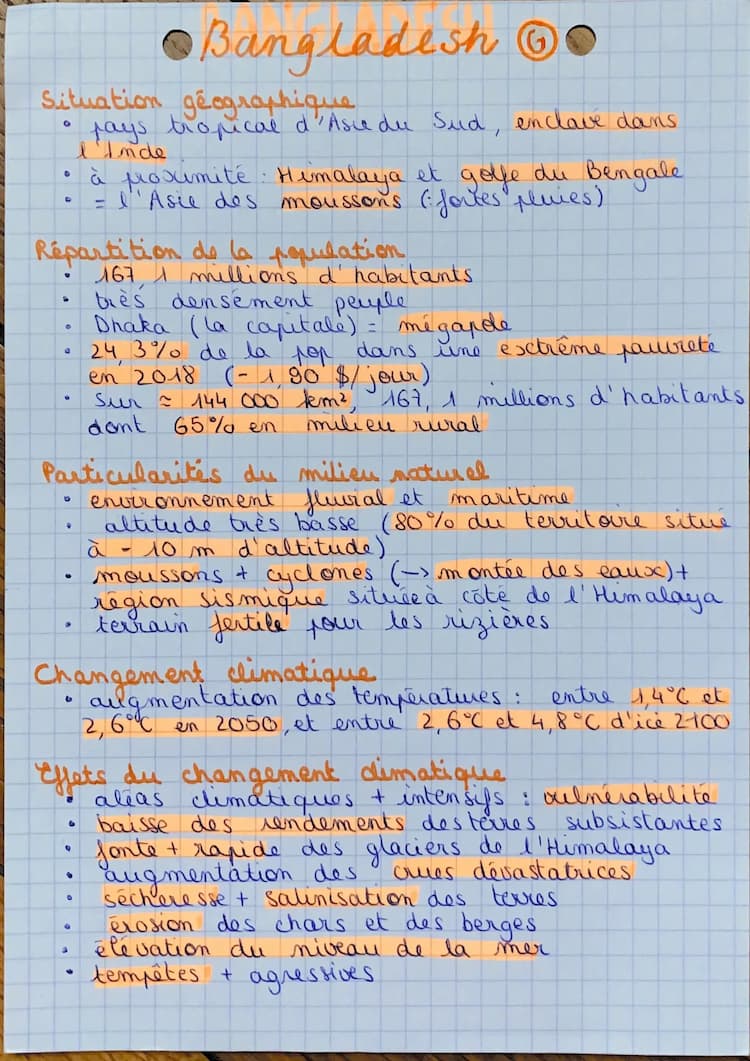 BANGLADESH
Bangladesh G
Situation géographique
• pays tropical d'Asie du Sud, enclavé dans
l'Inde
• à proximité : Himalaya et golfe du Bengale
• = l'Asie des moussons (: fortes pluies)
Répartition de la population
• 167, 1 millions d'habitants
• très densément peuple
• Dhaka (la capitale) = mégapole
• 24,3% de la pop dans une extrême pauvreté
en 2018 (- 1,90 $/jour)
• Sur ≈ 144 000 km², 167, 1 millions d'habitants
dont 65% en milieu rural
Particularités du milieu naturel
• environnement fluvial et maritime
• altitude très basse (80% du territoire situé
à - 10 m d'altitude)
• moussons + cyclones (→ montée des eaux) +
région sismique située à côté de l'Himalaya
• terrain fertile pour les rizières
Changement climatique
• augmentation des températures : entre 1,4°C et
2,6°C en 2050, et entre 2,6°C et 4,8°C d'ici 2100
Effets du changement climatique
• aléas climatiques + intensifs : vulnérabilité
• baisse des rendements des terres subsistantes
• fonte + rapide des glaciers de l'Himalaya
• augmentation des crues dévastatrices
• sécheresse + salinisation des terres
• érosion des chars et des berges
• élévation du niveau de la mer
• tempêtes + agressives